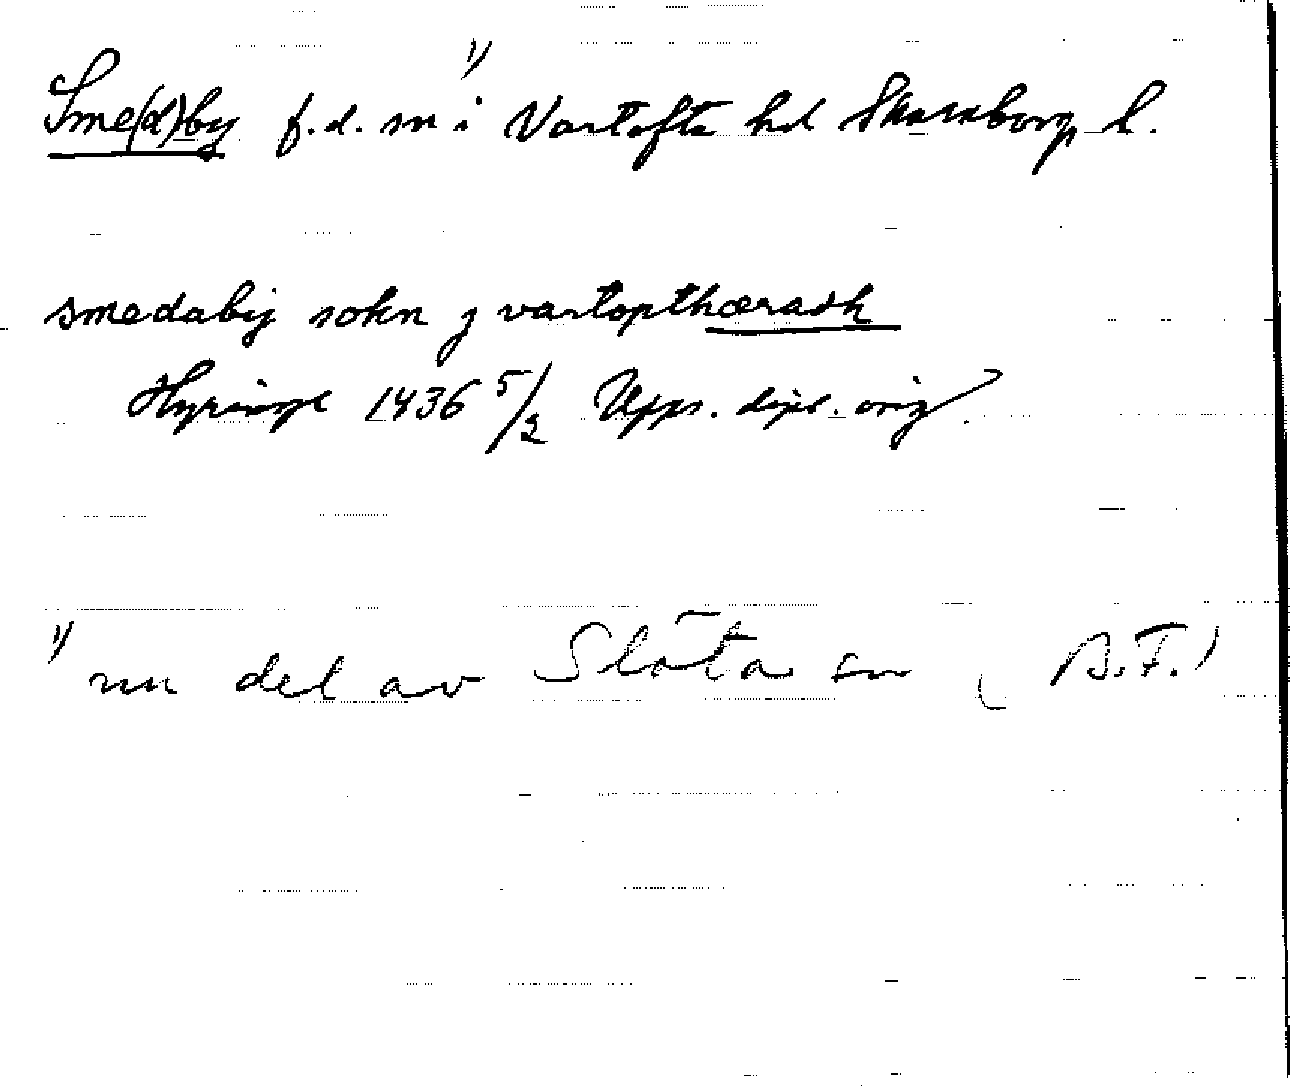 Sme(d)by f.d. sn ¹⁾ i Vartofta hd Skaraborg l.
smedabij sokn j vartopthæradh
Hyringe 1436 5/2 Upps. dipl. orig.
¹⁾ nu del av Slöta sn (B.F.)